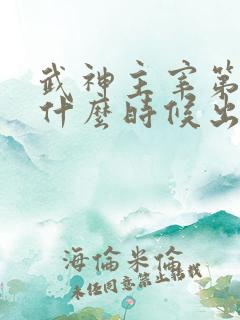 武神主宰第
什麼時候出
海倫米倫
未經同意禁止轉載